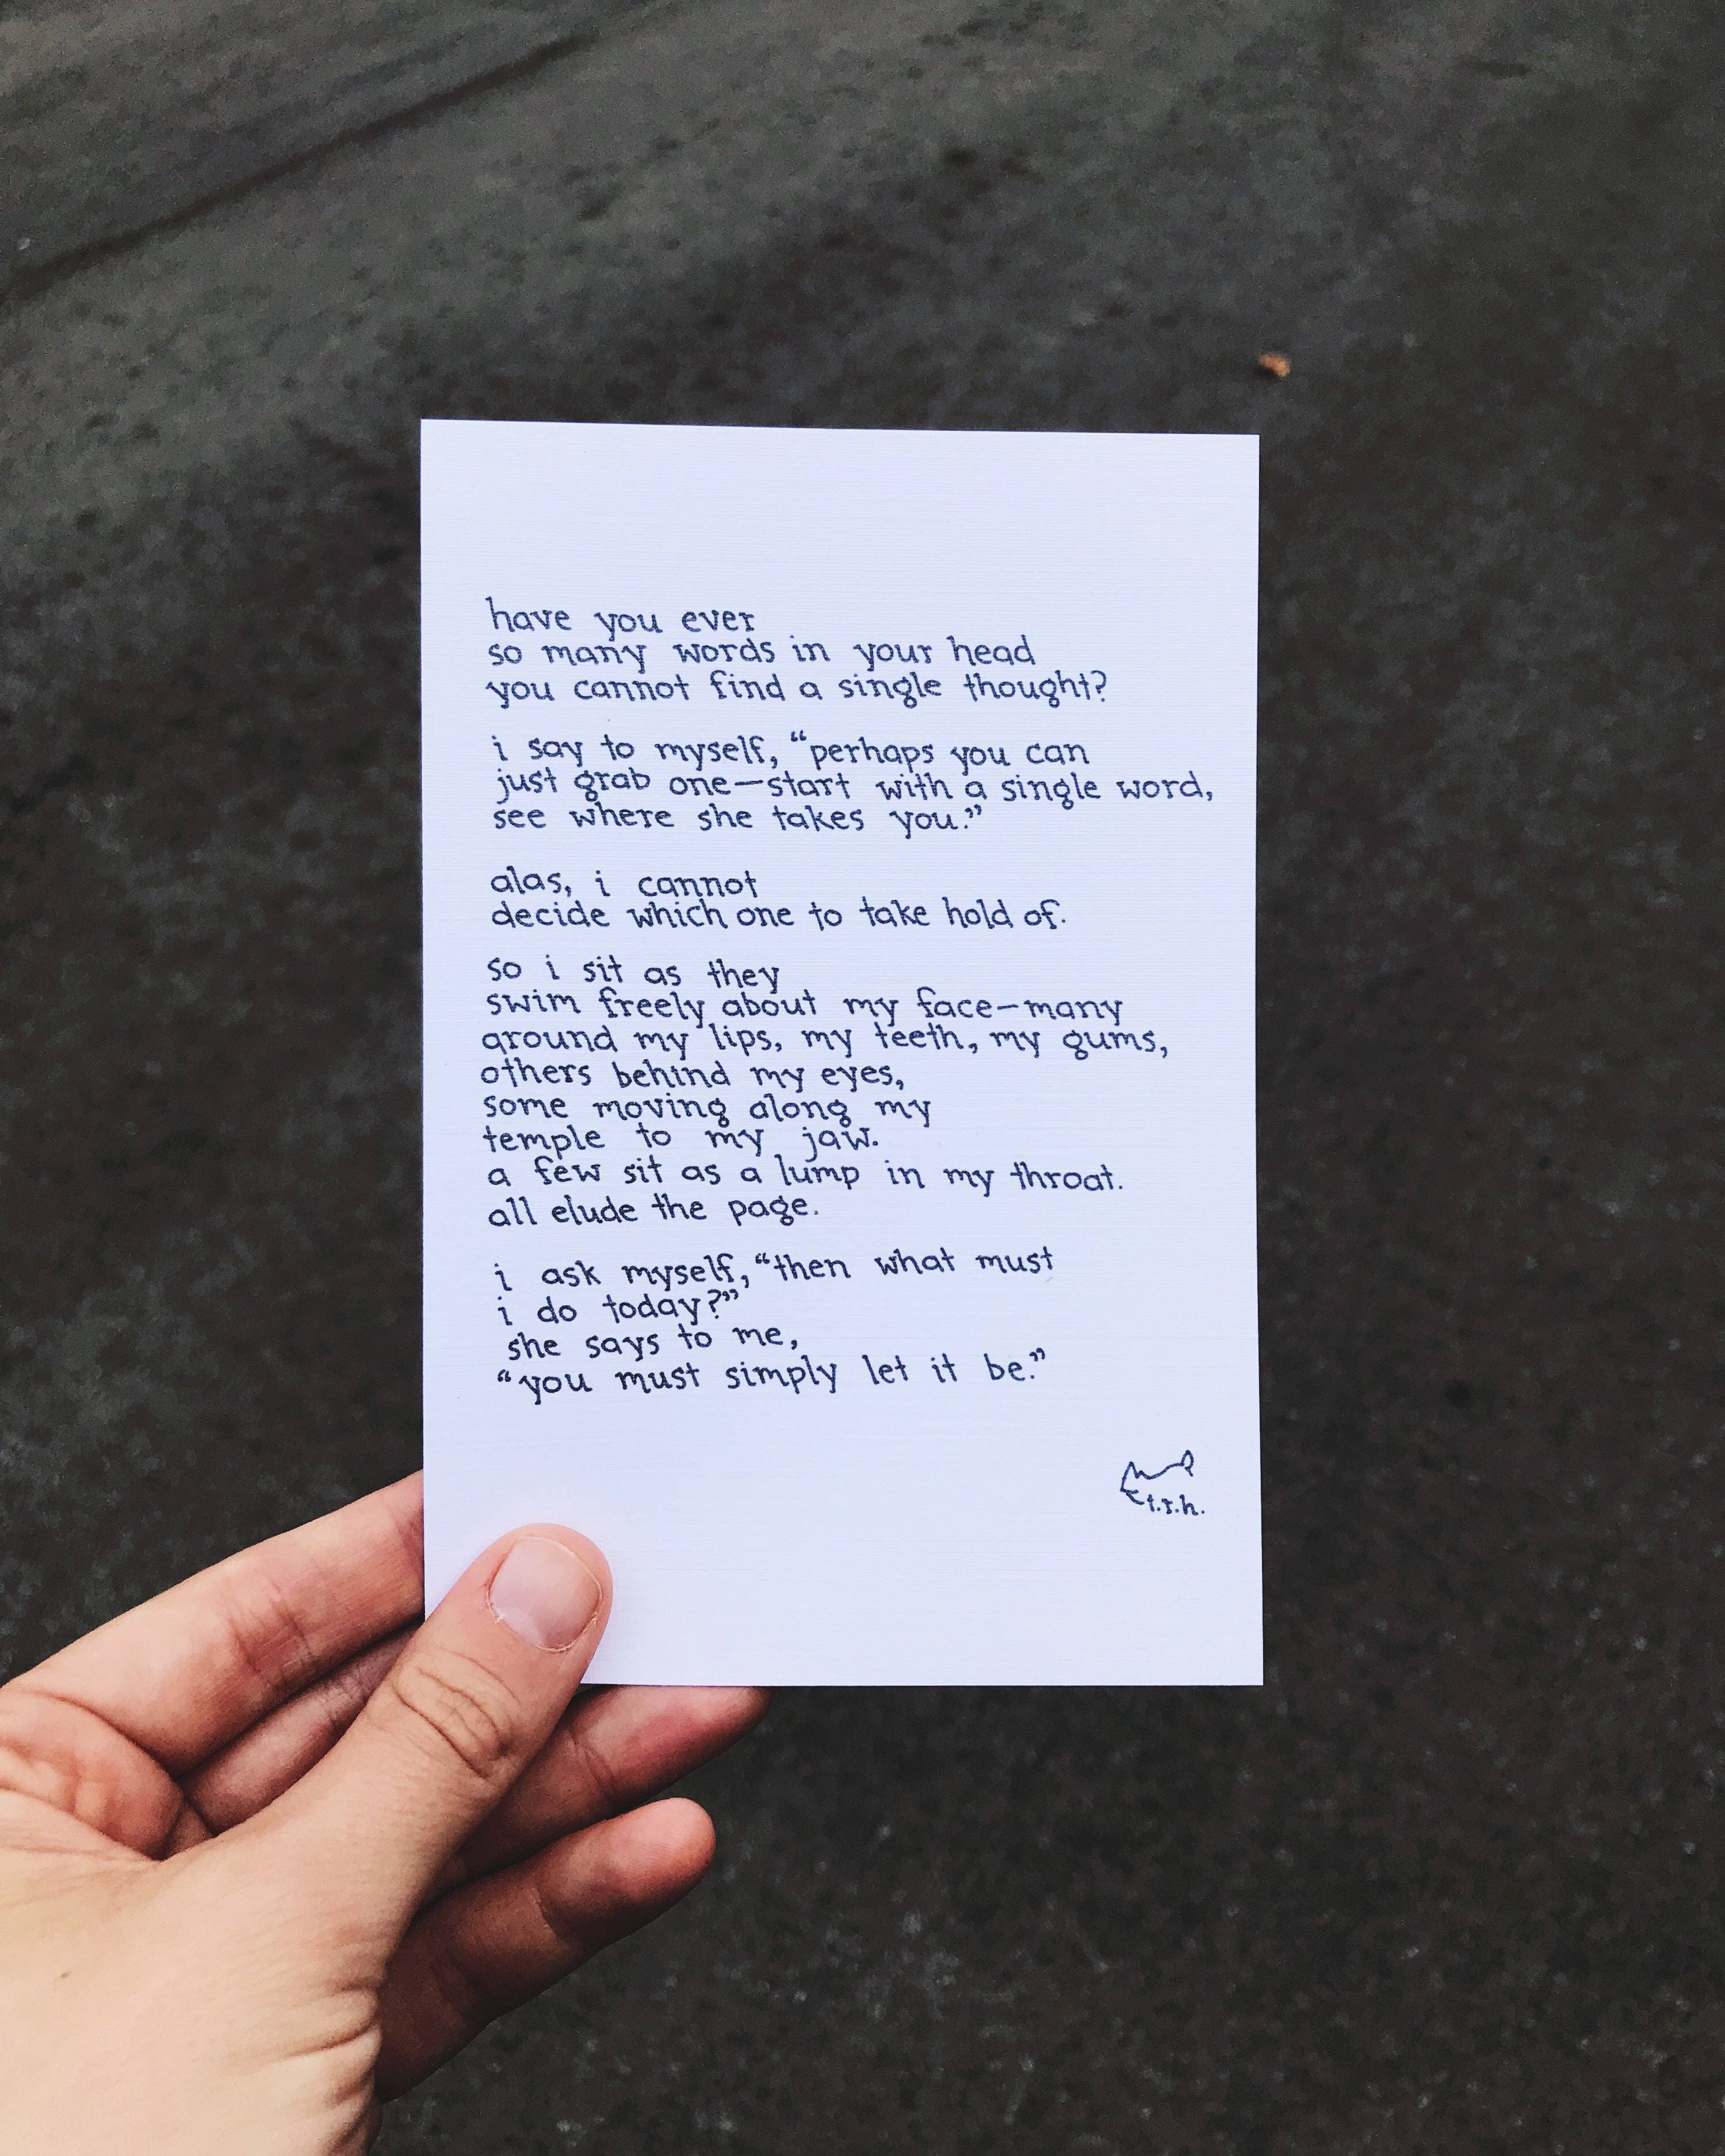 have you ever
so many words in your head
you cannot find a single thought?
i say to myself, “perhaps you can
just grab one—start with a single word,
see where she takes you.”
alas, i cannot
decide which one to take hold of.
so i sit as they
swim freely about my face—many
around my lips, my teeth, my gums,
others behind my eyes,
some moving along my
temple to my jaw.
a few sit as a lump in my throat.
all elude the page.
i ask myself, “then what must
i do today?”
she says to me,
“you must simply let it be.”
t.r.h.